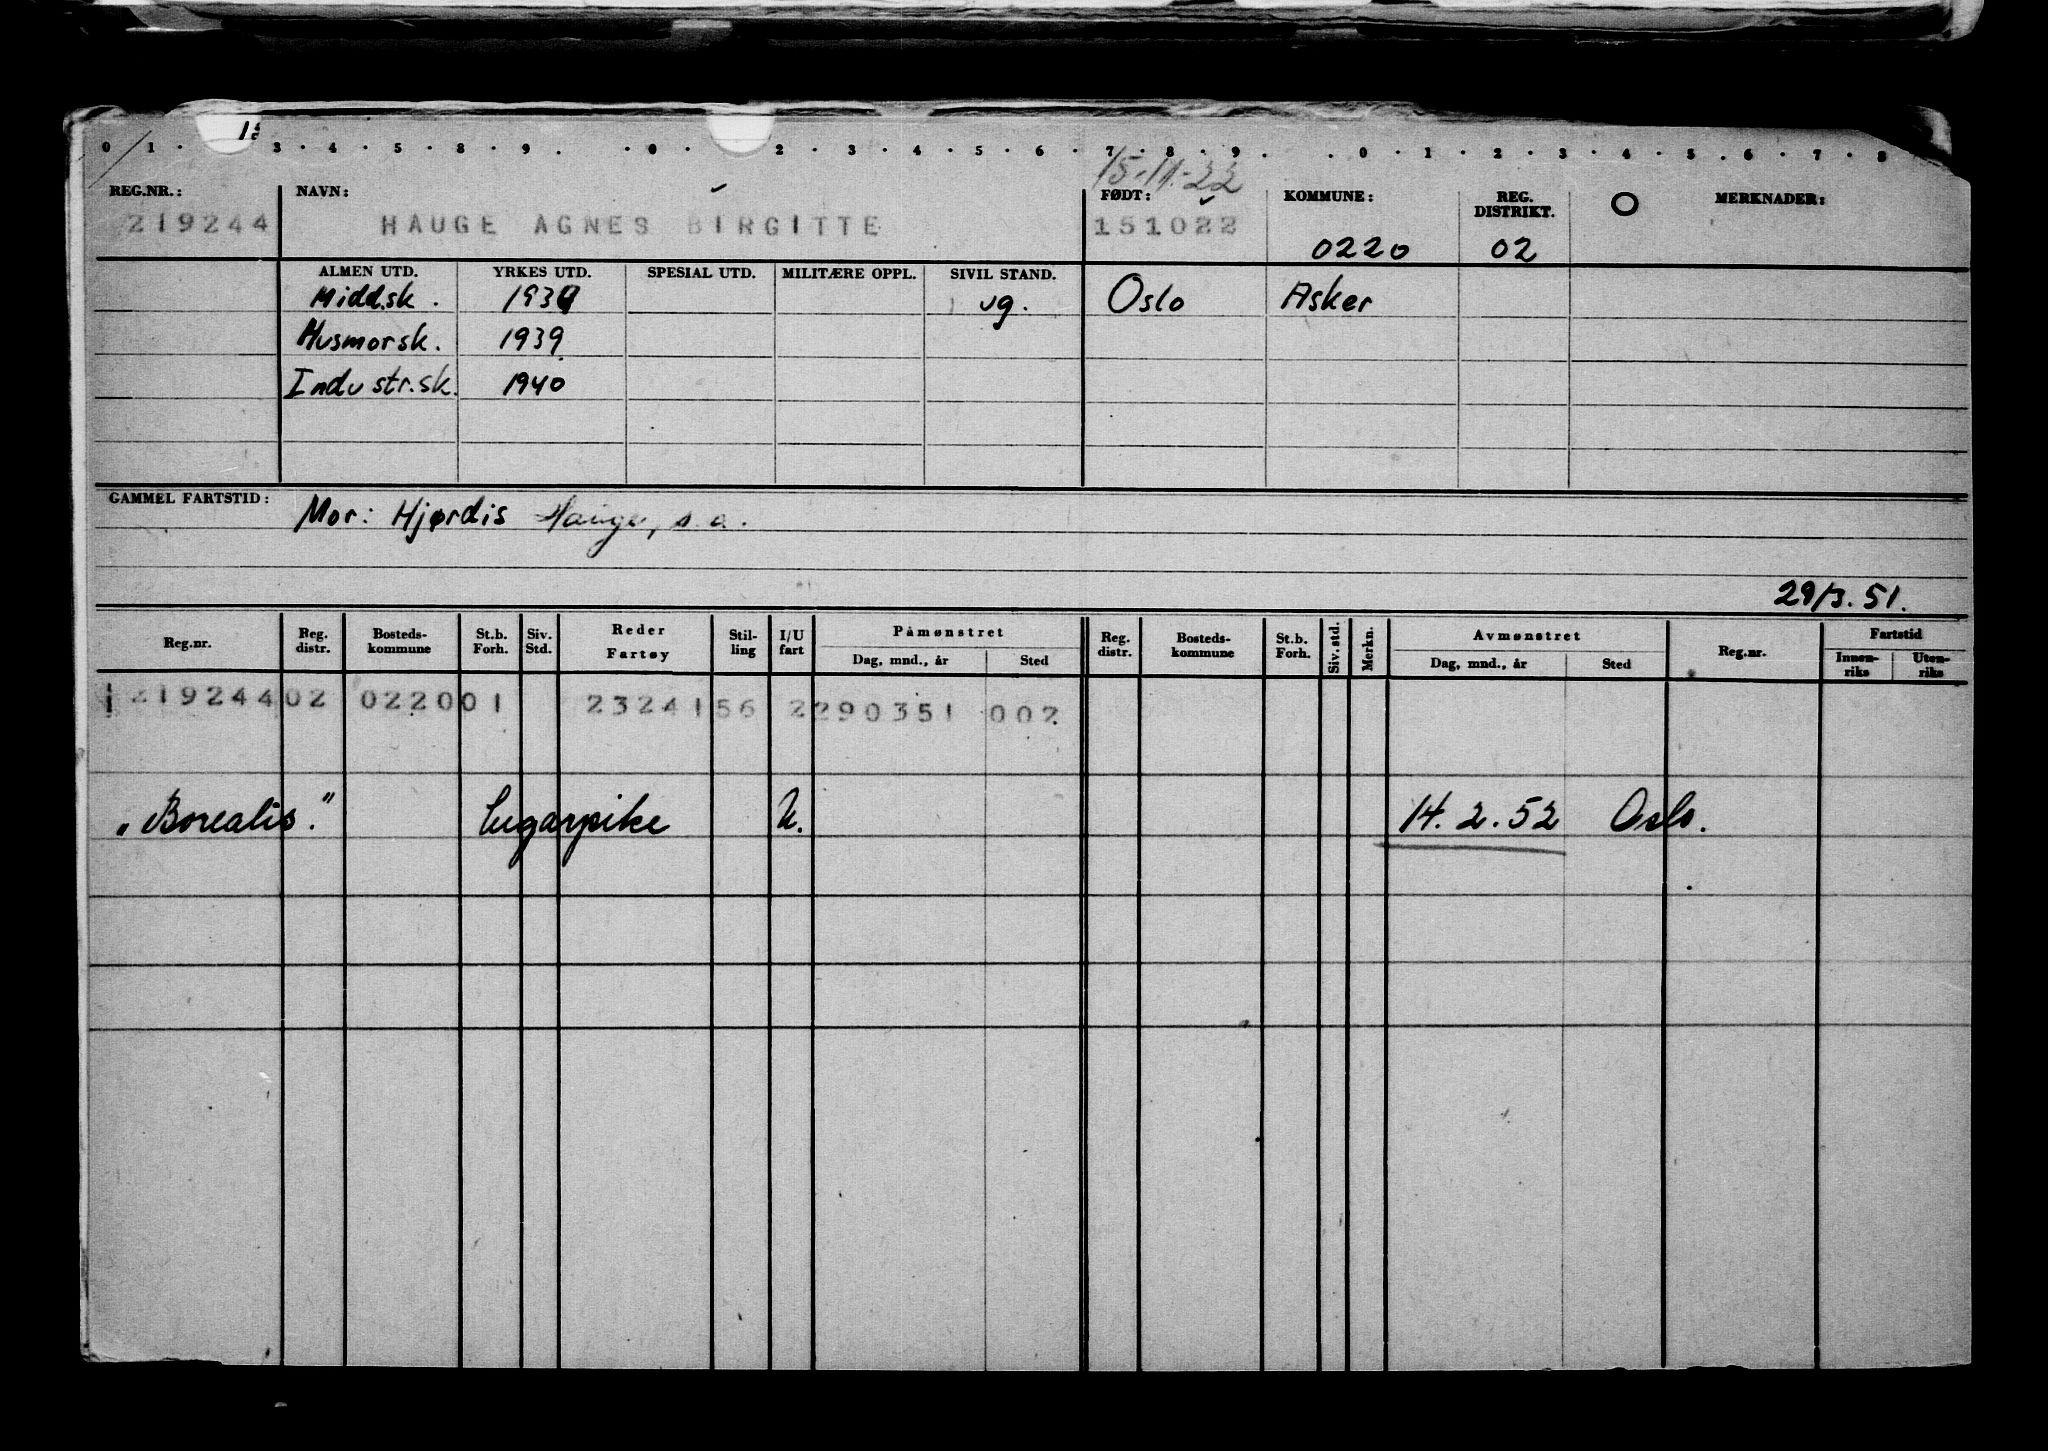 0 1 3 4 5 8 9 0 2 3 4 5 6 7 8 9 0 1 2 3 4 5 6 7 8
15-11-22
REG.NR.: NAVN: FØDT: KOMMUNE: REG. DISTRIKT. O MERKNADER:
219244 HAUGE AGNES BIRGITTE 151022 0220 02
ALMEN UTD. YRKES UTD. SPESIAL UTD. MILITÆRE OPPL. SIVIL STAND.
Midd.sk. 1939 ug. Oslo Asker
Husmorsk. 1939
Industr.sk. 1940
GAMMEL FARTSTID: Mor: Hjørdis Hauge, s.a.
29/3.51.
Reg.nr. Reg. distr. Bosteds-kommune St.b. Forh. Siv. Std. Reder Fartøy Stil-ling I/U fart Påmønstret Dag, mnd., år Sted Reg. distr. Bosteds-kommune St.b. Forh. Siv. std. Merkn. Avmønstret Dag, mnd., år Sted Reg.nr. Fartstid Innen-riks Uten-riks
219244 02 0220 01 23241 56 2 290351 002
„Borealis." Lugarpike U. 14.2.52 Oslo.